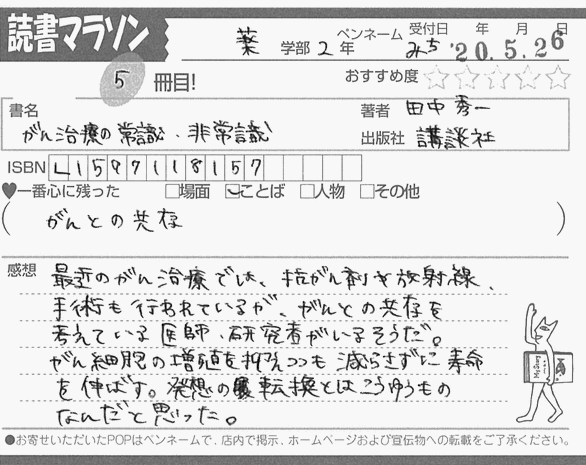 読書マラソン
薬 学部 2 年
ペンネーム みち
受付日 年 月 日
'20.5.26
5 冊目!
おすすめ度 ☆☆☆☆☆
書名 がん治療の常識、非常識
著者 田中秀一
出版社 講談社
ISBN
♥一番心に残った □場面 □ことば □人物 □その他
( がんとの共存 )
感想
最近のがん治療では、抗がん剤や放射線、
手術も行われているが、がんとの共存を
考えている医師、研究者がいるそうだ。
がん細胞の増殖を抑えつつも減らさずに寿命
を伸ばす。発想の転換とはこうゆうもの
なんだと思った。
●お寄せいただいたPOPはペンネームで、店内で掲示、ホームページおよび宣伝物への転載をご了承ください。